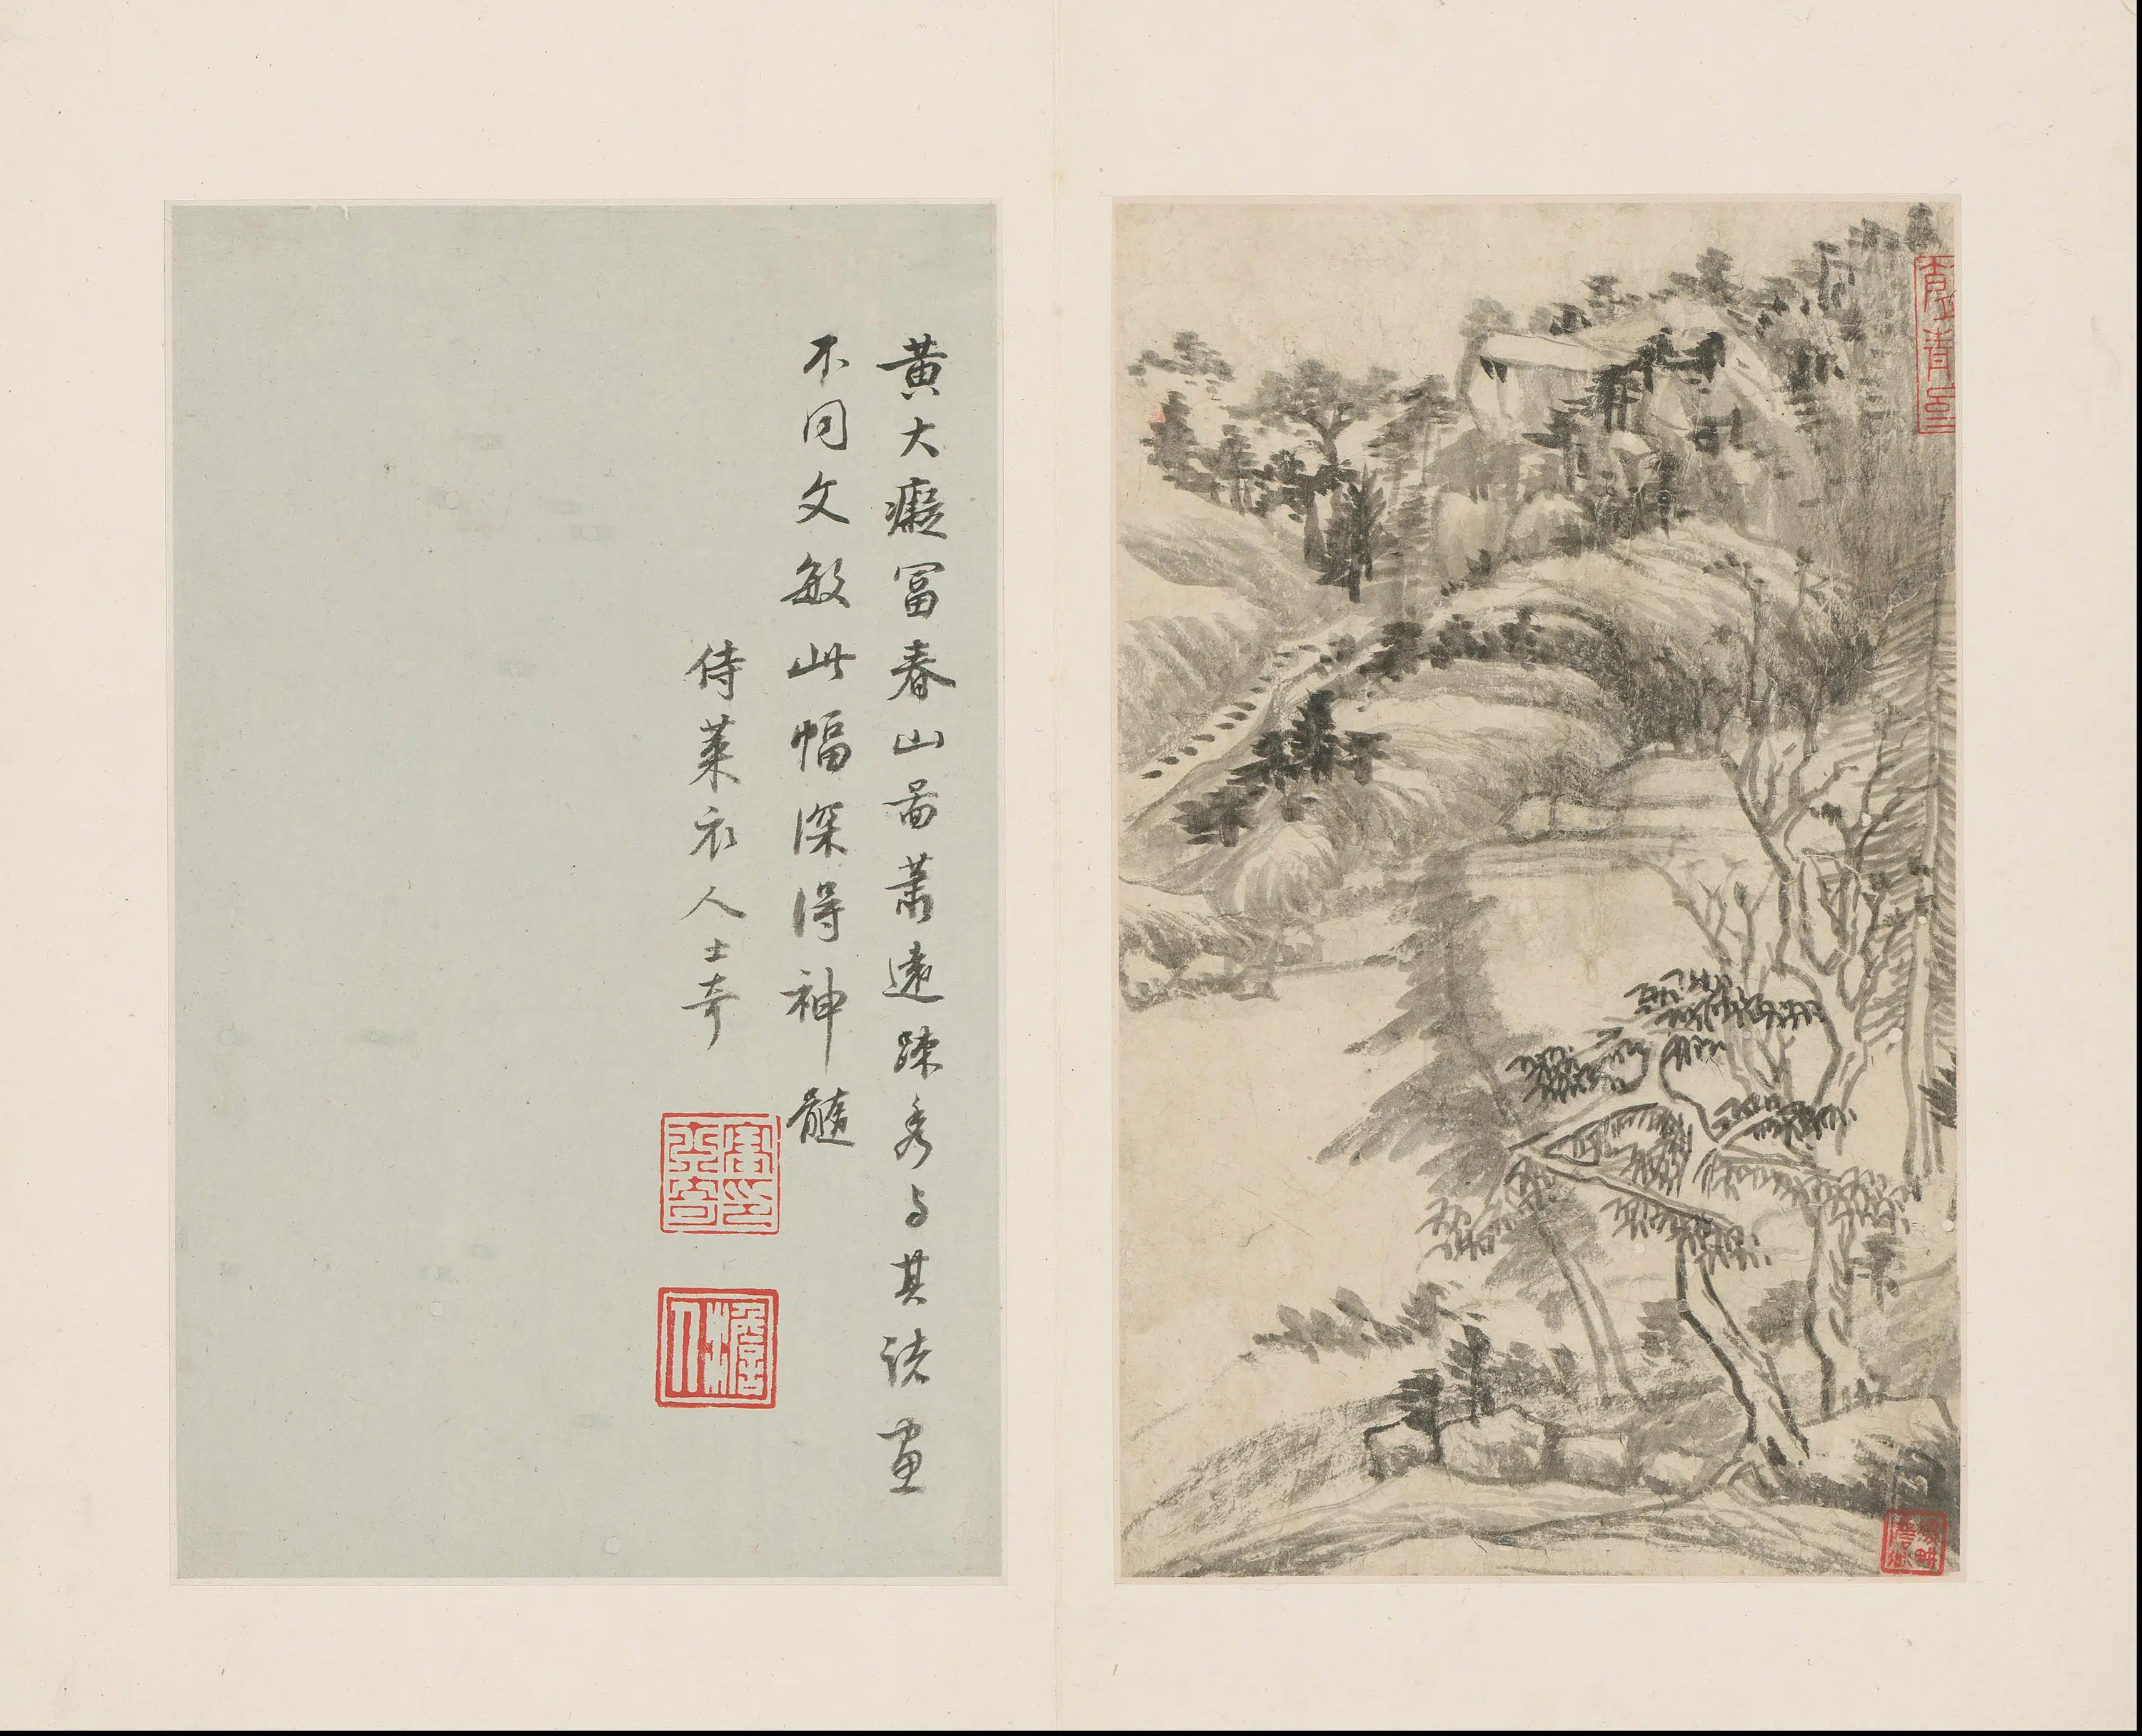 黄大癡富春山啚蕭遠踈秀与其諸畫
不同文敏此幅深得神髓
侍萊衣人士奇